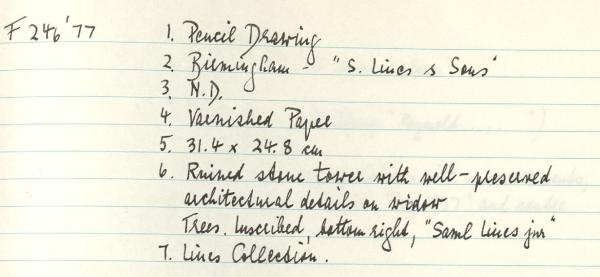 F 246 '77
1. Pencil Drawing
2. Birmingham - "S. Lines & Sons"
3. N.D.
4. Varnished Paper
5. 31.4 x 24.8 cm
6. Ruined stone tower with well-preserved
architectural details on widow
Trees. Inscribed, bottom right, "Saml Lines jnr"
7. Lines Collection.